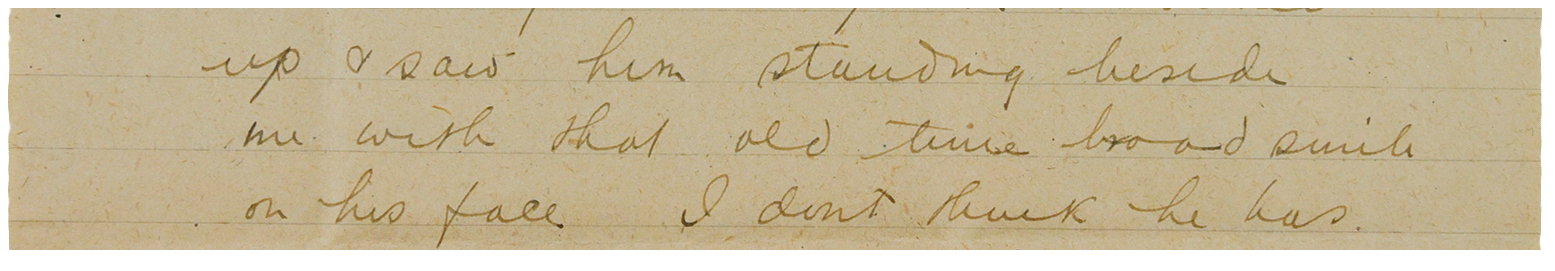 up & saw him standing beside
me with that old time broad smile
on his face I dont think he has.